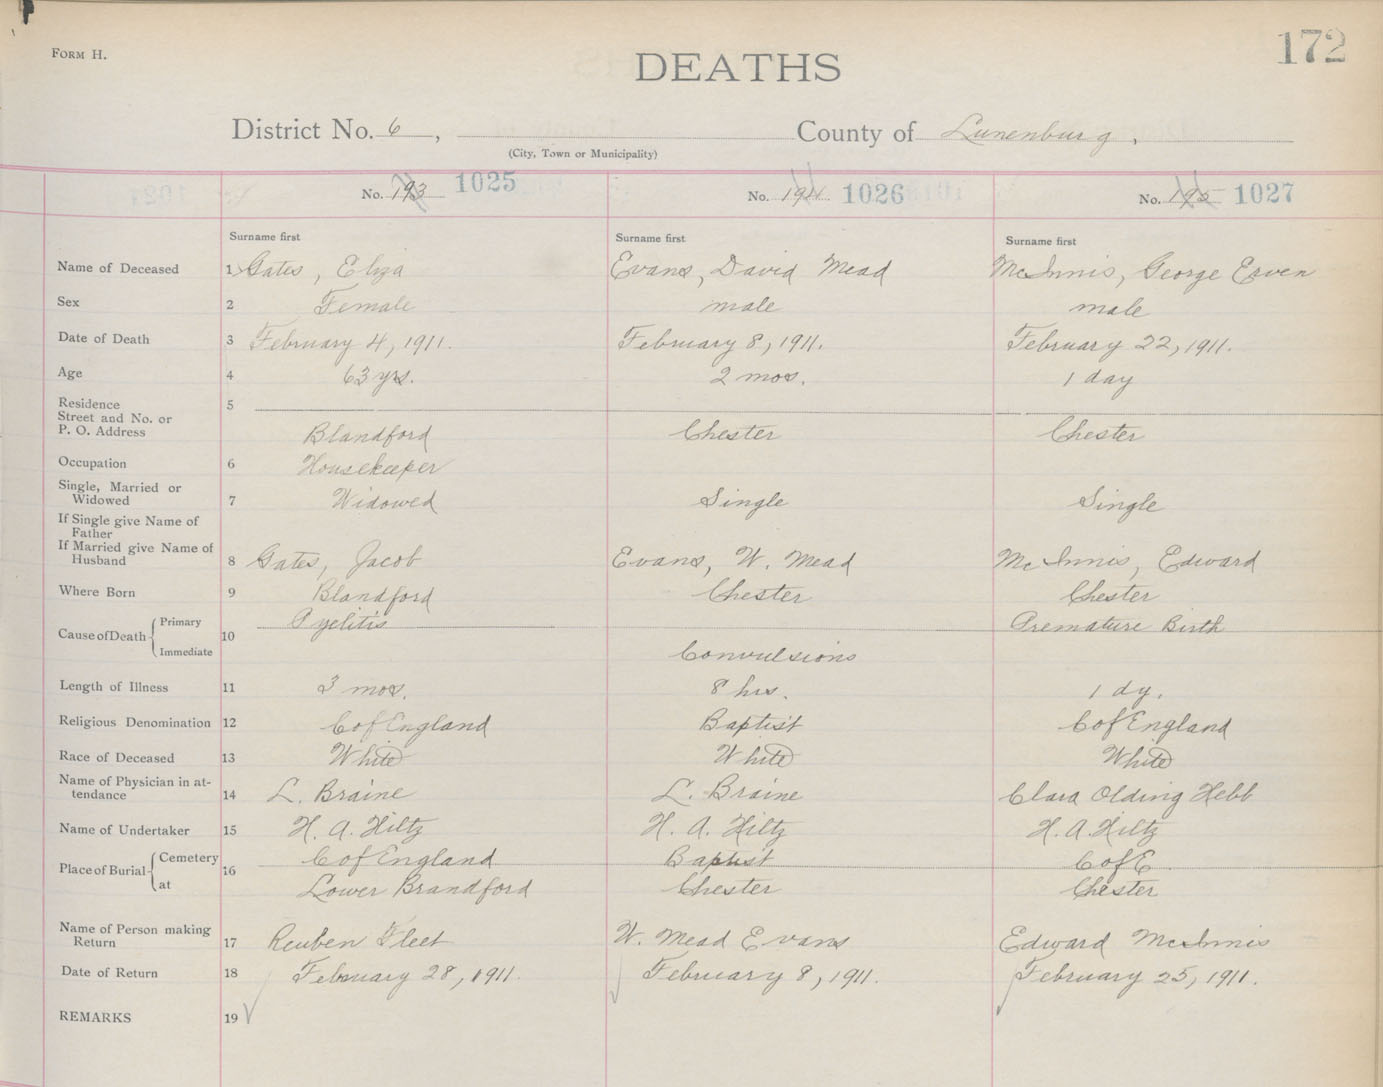 FORM H.
172
DEATHS
District No. 6, County of Lunenburg,
(City, Town or Municipality)
No. 193 1025 No. 194 1026 No. 195 1027
Surname first Surname first Surname first
Name of Deceased 1 Gates, Eliza Evans, David Mead McInnis, George Erven
Sex 2 Female male male
Date of Death 3 February 4, 1911. February 8, 1911. February 22, 1911.
Age 4 63 yrs. 2 mos. 1 day
Residence 5
Street and No. or
P. O. Address Blandford Chester Chester
Occupation 6 Housekeeper
Single, Married or
Widowed 7 Widowed Single Single
If Single give Name of
Father
If Married give Name of
Husband 8 Gates, Jacob Evans, W. Mead McInnis, Edward
Where Born 9 Blandford Chester Chester
Cause of Death 10 Primary Pyelitis Premature Birth
Immediate Convulsions
Length of Illness 11 3 mos. 8 hrs. 1 dy.
Religious Denomination 12 C of England Baptist C of England
Race of Deceased 13 White White White
Name of Physician in at-
tendance 14 L. Braine L. Braine Clara Olding Hebb
Name of Undertaker 15 H. A. Hiltz H. A. Hiltz H. A. Hiltz
Place of Burial 16 Cemetery C of England Baptist C of E
at Lower Brandford Chester Chester
Name of Person making
Return 17 Reuben Fleet W. Mead Evans Edward McInnis
Date of Return 18 February 28, 1911. February 8, 1911. February 25, 1911.
REMARKS 19